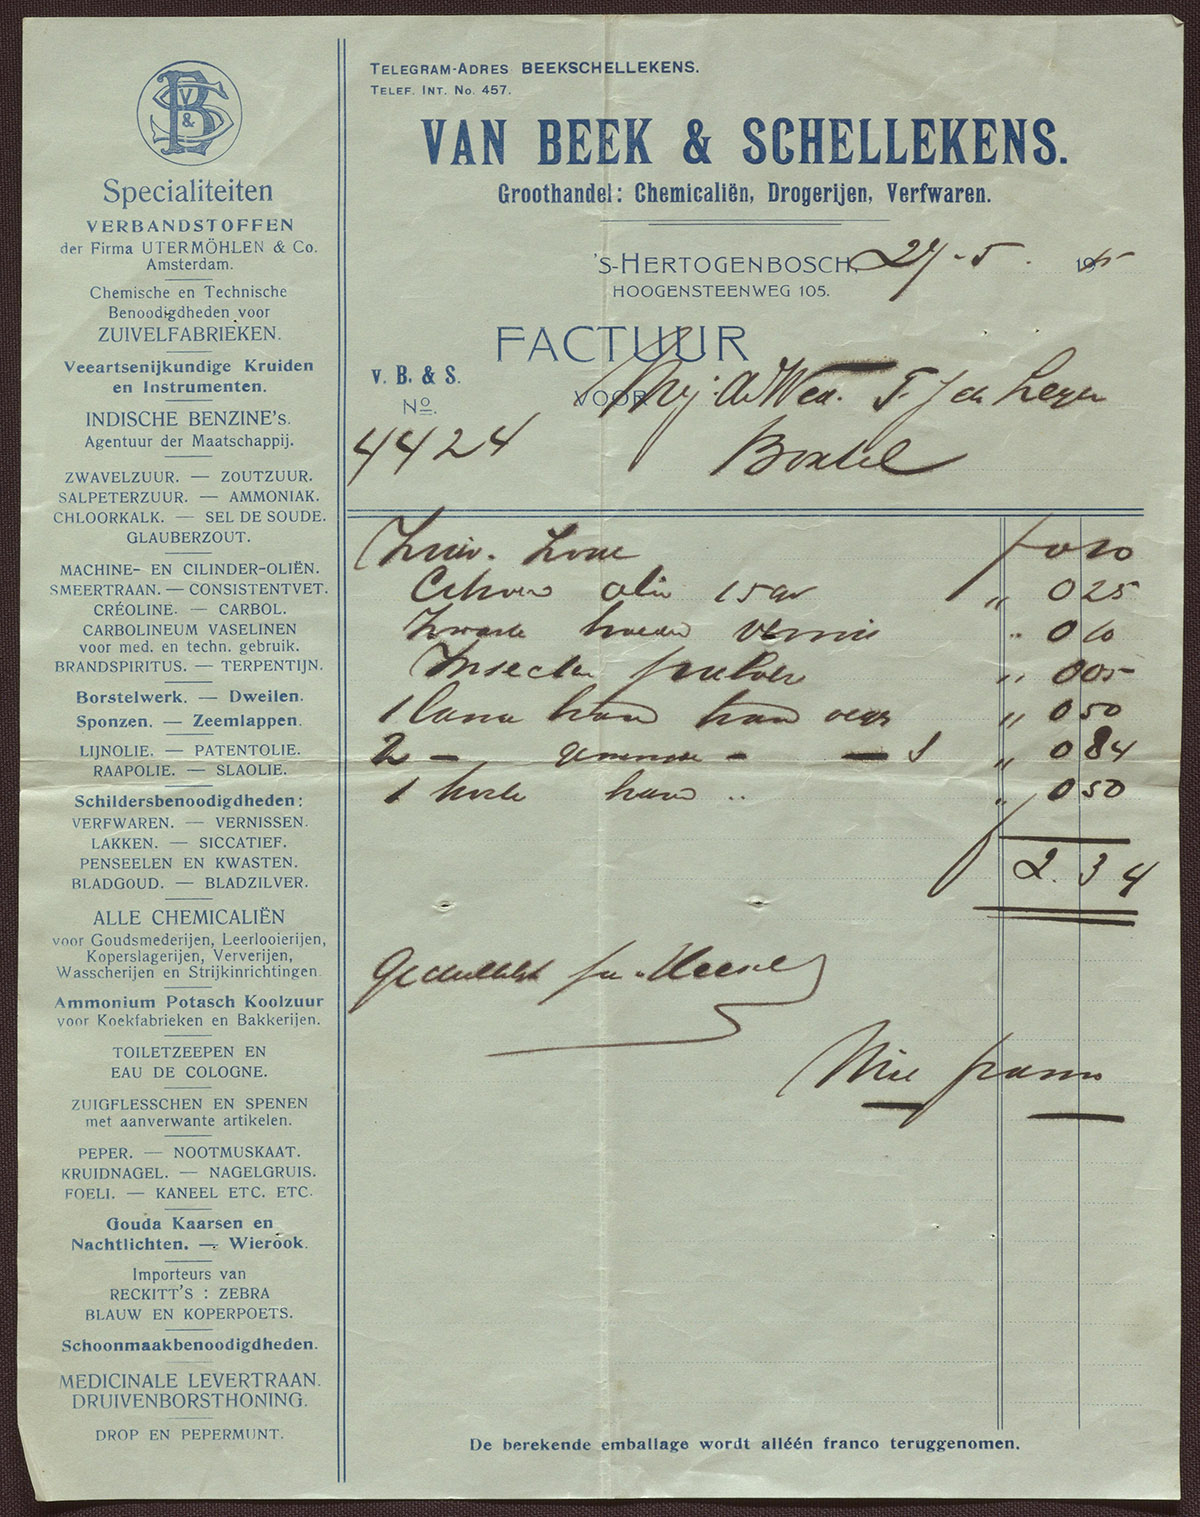 VB&S
Specialiteiten
VERBANDSTOFFEN
der Firma UTERMÖHLEN & Co.
Amsterdam.
Chemische en Technische
Benoodigdheden voor
ZUIVELFABRIEKEN.
Veeartsenijkundige Kruiden
en Instrumenten.
INDISCHE BENZINE's.
Agentuur der Maatschappij.
ZWAVELZUUR. — ZOUTZUUR.
SALPETERZUUR. — AMMONIAK.
CHLOORKALK. — SEL DE SOUDE.
GLAUBERZOUT.
MACHINE- EN CILINDER-OLIËN.
SMEERTRAAN. — CONSISTENTVET.
CRÉOLINE. — CARBOL.
CARBOLINEUM VASELINEN
voor med. en techn. gebruik.
BRANDSPIRITUS. — TERPENTIJN.
Borstelwerk. — Dweilen.
Sponzen. — Zeemlappen.
LIJNOLIE. — PATENTOLIE.
RAAPOLIE. — SLAOLIE.
Schildersbenoodigdheden:
VERFWAREN. — VERNISSEN.
LAKKEN. — SICCATIEF.
PENSEELEN EN KWASTEN.
BLADGOUD. — BLADZILVER.
ALLE CHEMICALIËN
voor Goudsmederijen, Leerlooierijen,
Koperslagerijen, Ververijen,
Wasscherijen en Strijkinrichtingen.
Ammonium Potasch Koolzuur
voor Koekfabrieken en Bakkerijen.
TOILETZEEPEN EN
EAU DE COLOGNE.
ZUIGFLESSCHEN EN SPENEN
met aanverwante artikelen.
PEPER. — NOOTMUSKAAT.
KRUIDNAGEL. — NAGELGRUIS.
FOELI. — KANEEL ETC. ETC.
Gouda Kaarsen en
Nachtlichten. — Wierook.
Importeurs van
RECKITT'S : ZEBRA
BLAUW EN KOPERPOETS.
Schoonmaakbenoodigdheden.
MEDICINALE LEVERTRAAN.
DRUIVENBORSTHONING.
DROP EN PEPERMUNT.
TELEGRAM-ADRES BEEKSCHELLEKENS.
TELEF. INT. No. 457.
VAN BEEK & SCHELLEKENS.
Groothandel: Chemicaliën, Drogerijen, Verfwaren.
'S-HERTOGENBOSCH, 27-5. 19
HOOGENSTEENWEG 105.
FACTUUR
v. B. & S. VOOR Mej. de Wed. F. J de
No.
4424 Boxtel
f 0
olie 15 gr " 0 25
Zwarte hoeden vernis " 0 10
Insecten pulver " 0 05
1 " 0 50
2 - - — " 0 84
1 " 0 50
f 2.34
franco
De berekende emballage wordt alléén franco teruggenomen.